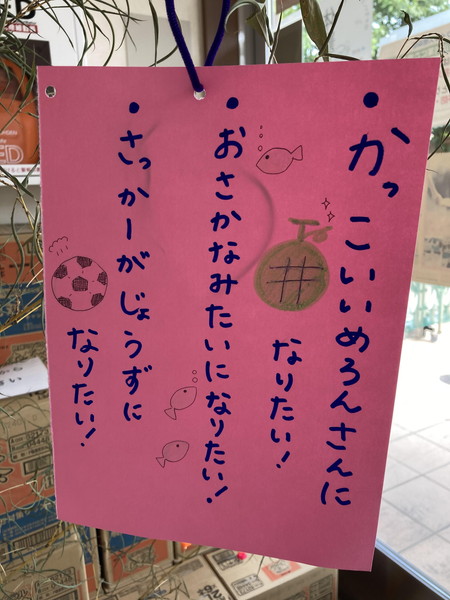 ・かっこいいめろんさんに
なりたい!
・おさかなみたいになりたい!
・さっかーがじょうずに
なりたい!